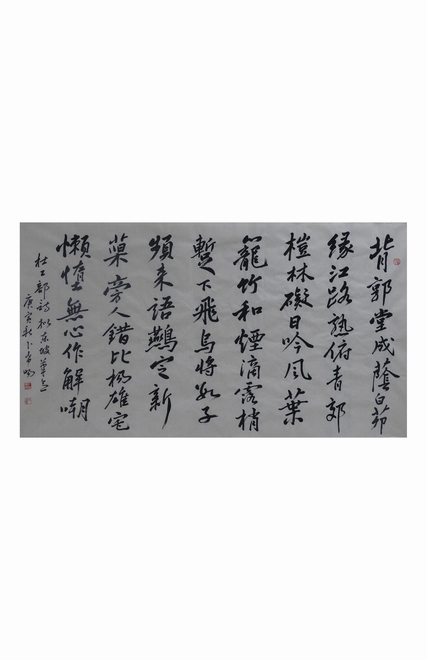 背郭堂成蔭白茆
緣江路熟俯青郊
榿林礙日吟風葉
籠竹和煙滴露梢
暫下飛烏將數子
頻來語鷰定新
巢旁人錯比楊雄宅
懶惰無心作解嘲
杜工部詩拟东坡筆意
庚寅秋